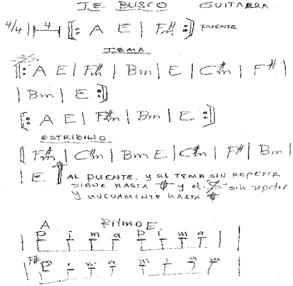 TE BUSCO GUITARRA
4/4 | 4 | [: A E | F# :] PUENTE
TEMA
[: A E | F#m | Bm | E | C#m | F# |
| Bm | E :]
[: A E | F#m | Bm | E :]
ESTRIBILLO
| F#m | C#m | Bm | E | C#m | F# | Bm |
| E | AL PUENTE. y AL TEMA SIN REPETIR
SIGUE HASTA y el sin repetir
y NUEVAMENTE HASTA
A RITMO E
P i m a P i m a
F#
P i m a P i m a